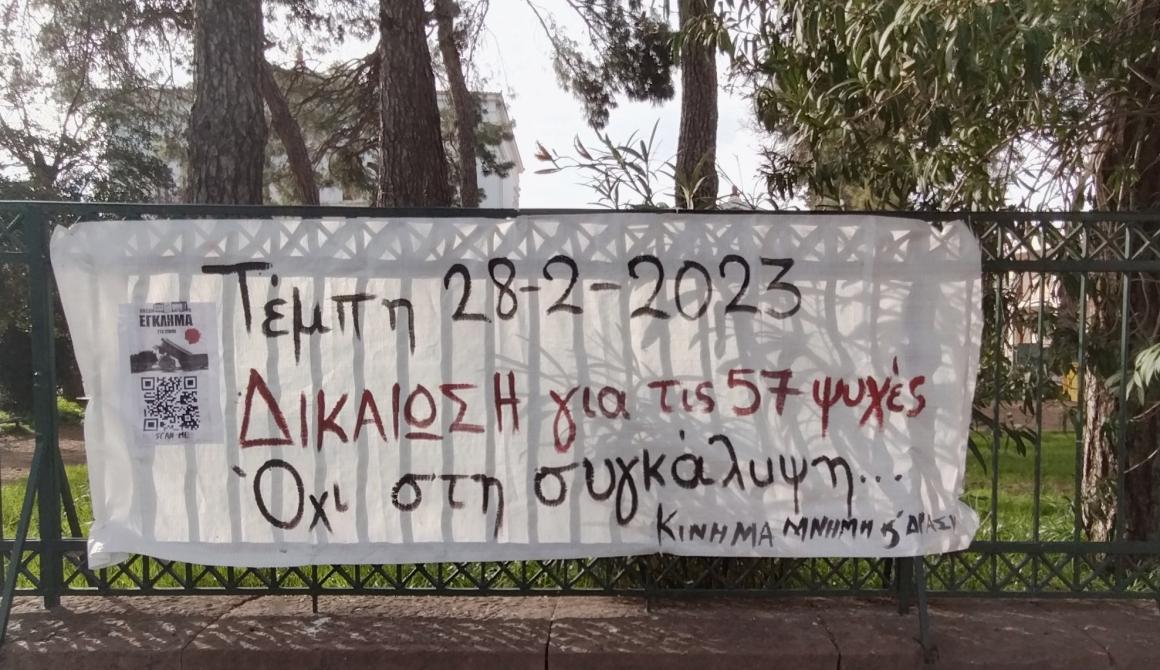 Τέμπη 28-2-2023
ΔΙΚΑΙΩΣΗ για τις 57 ψυχές
Όχι στη συγκάλυψη...
ΚΙΝΗΜΑ ΜΝΗΜΗ κ' ΔΡΑΣΗ
ΕΓΚΛΗΜΑ
SCAN ME